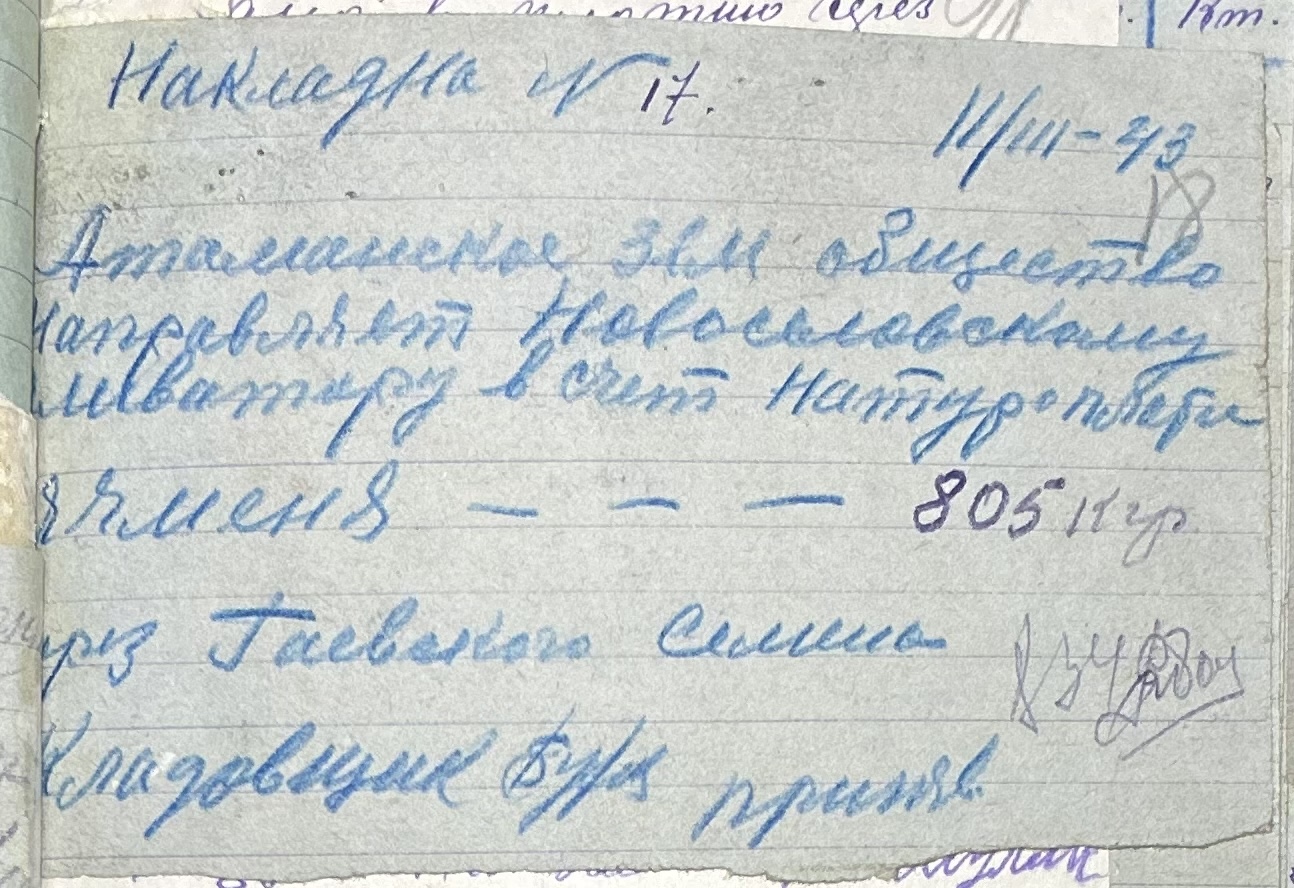 Накладна № 17.
11/III-43
18
Атаманское зем общество
направляет Новоселовскому
элеватору в счет Натуроплати
ячменя - - - 805 кгр
через Гаевского Семена
Кладовщик приняв.